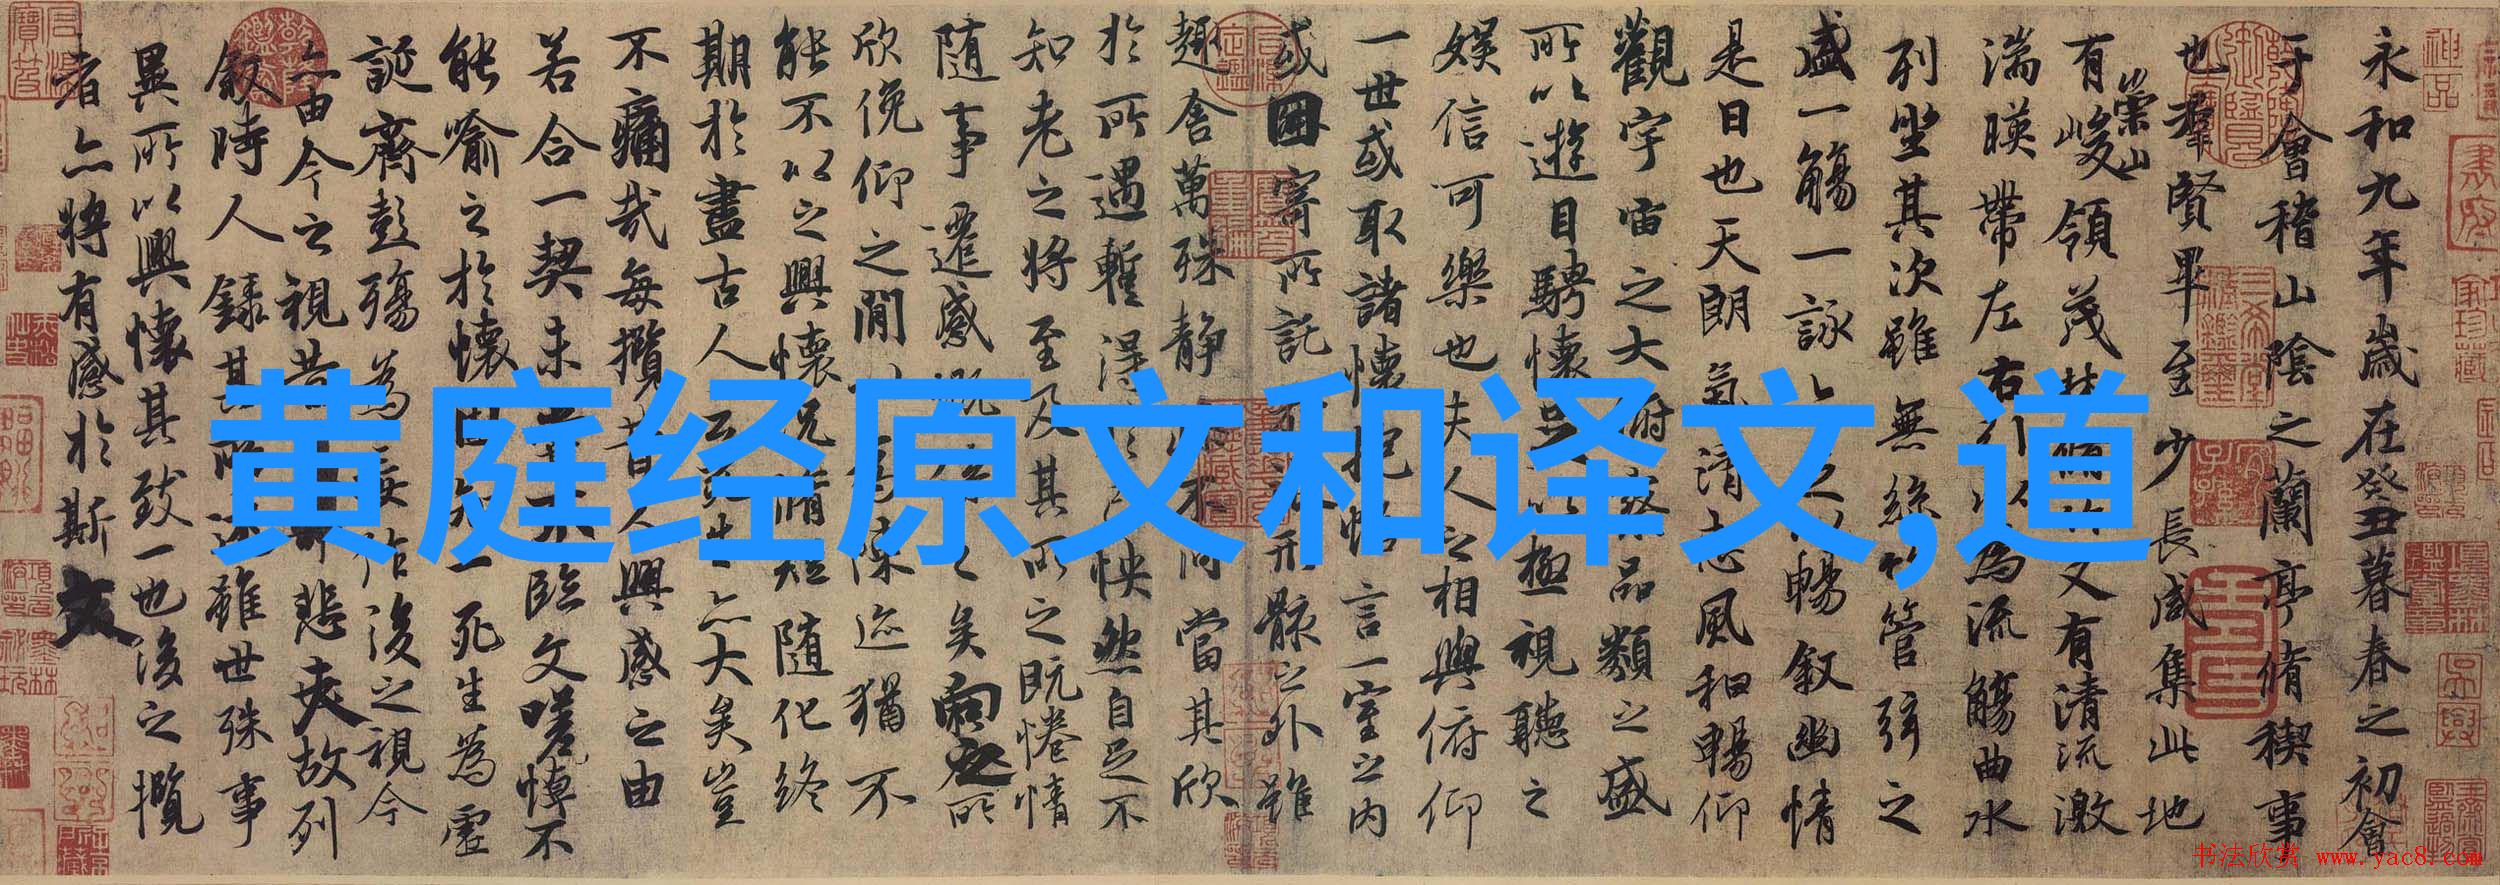 黄庭经原文和译文,道
永和九年歲在癸丑暮春之初會
于會稽山陰之蘭亭脩稧事
也群賢畢至少長咸集此地
有崇山峻領茂林脩竹又有清流激
湍暎帶左右引以為流觴曲水
列坐其次雖無絲竹管弦之
盛一觴一詠亦足以暢叙幽情
是日也天朗氣清惠風和暢仰
觀宇宙之大俯察品類之盛
所以遊目騁懷足以極視聽之
娛信可樂也夫人之相與俯仰
一世或取諸懷抱悟言一室之內
或因寄所託放浪形骸之外雖
趣舍萬殊静躁不同當其欣
於所遇暫得於己怏然自足不
知老之將至及其所之既惓情
隨事遷感慨係之矣向之所
欣俛仰之閒以為陳迹猶不
能不以之興懷況脩短隨化終
期於盡古人云死生亦大矣豈
不痛哉每攬昔人興感之由
若合一契未嘗不臨文嗟悼不
能喻之於懷固知一死生為虛
誕齊彭殤為妄作後之視今
亦由今之視昔悲夫故列
叙時人錄其所述雖世殊事
異所以興懷其致一也後之攬
者亦將有感於斯文
书法欣赏 www.yac8.com